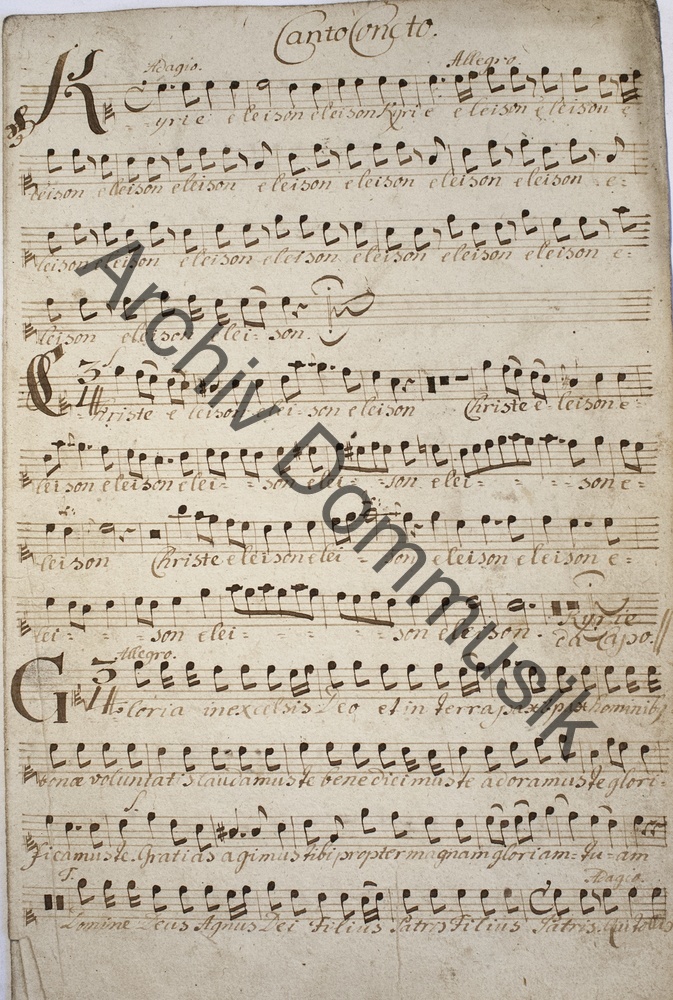 Canto Conc̄to.
Adagio. Allegro.
Kyrie eleison eleison Kyrie eleison eleison e
leison eleison eleison eleison eleison eleison eleison e-
leison eleison eleison eleison eleison eleison eleison e-
leison eleison elei- son.
Christe eleison elei- son eleison Christe eleison e-
leison eleison elei- - son elei- - son elei- - - - son e-
leison Christe eleison elei- - son eleison eleison e-
lei- - son elei- - - - son eleison. Kyrie
da Capo.
Allegro.
Gloria in excelsis Deo et in terra pax hominib9
bonæ voluntatis laudamus te benedicimus te adoramus te glori-
ficamus te. Gratias agimus tibi propter magnam gloriam- tu- am
T. Adagio.
Domine Deus Agnus Dei Filius Patris Filius Patris. Qui tollis
Archiv Dommusik